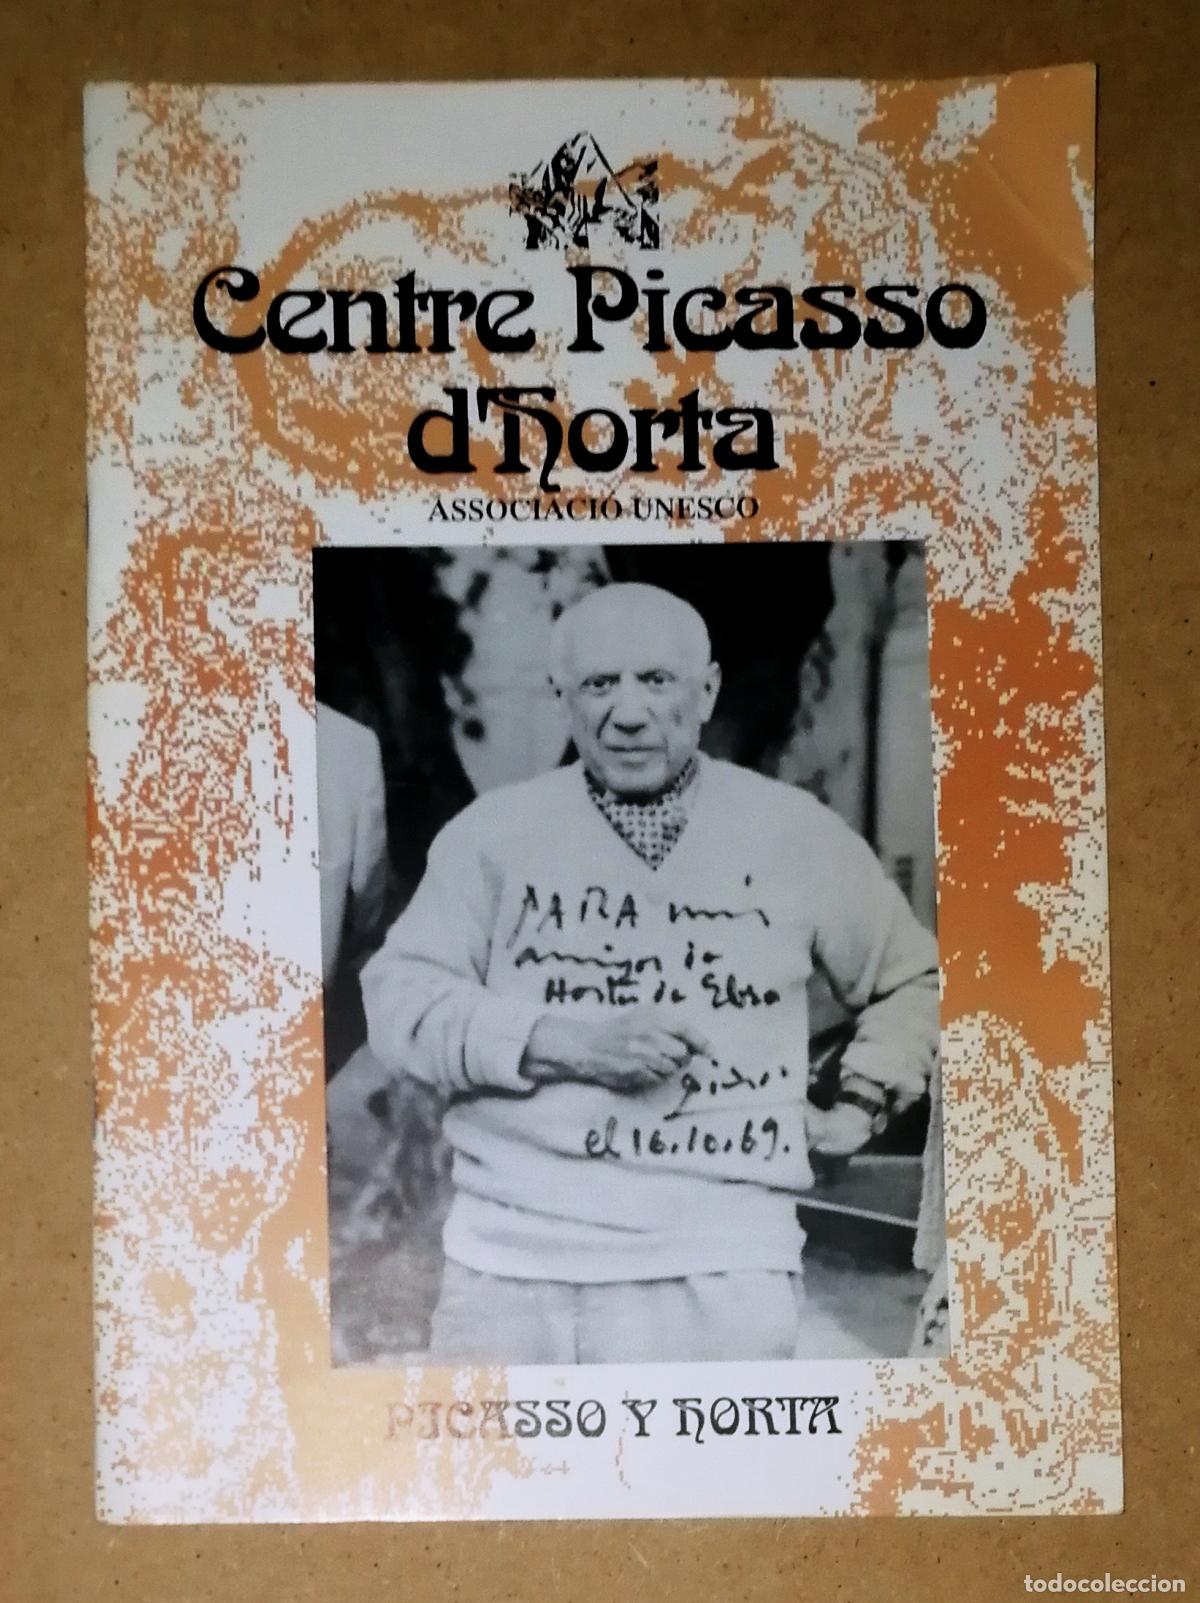 Centre Picasso
d'horta
ASSOCIACIÓ UNESCO
PARA mis
amigos de
Horta de Ebro
Picasso
el 16.10.69.
PICASSO Y HORTA
todocoleccion